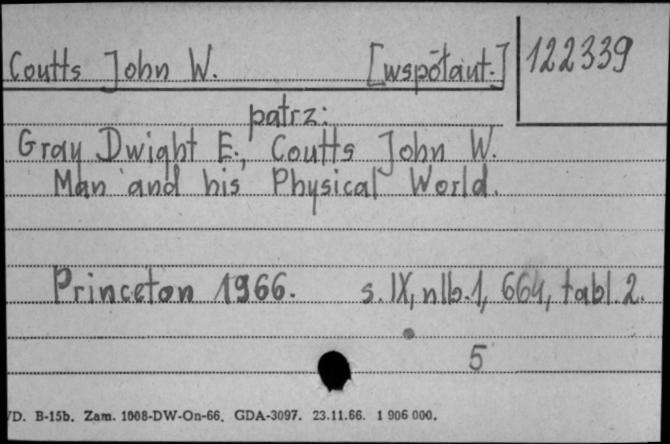 Coutts John W. [współaut.] 122339
patrz:
Gray Dwight E., Coutts John W.
Man and his Physical World.
Princeton 1966. s. IX, nlb. 1, 664, tabl. 2.
5
D. B-15b. Zam. 1008-DW-On-66. GDA-3097. 23.11.66. 1 906 000.